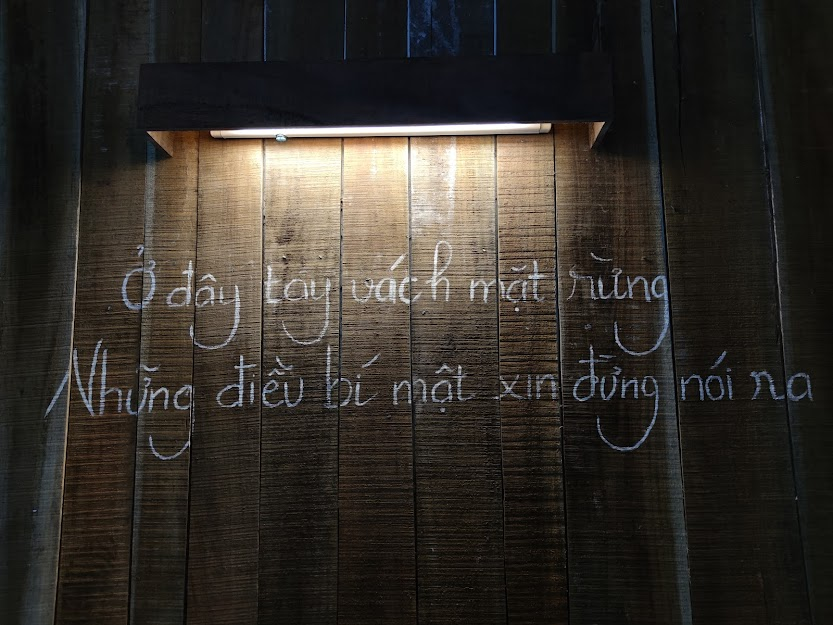 Ở đây tay vách mặt rừng
Những điều bí mật xin đừng nói ra